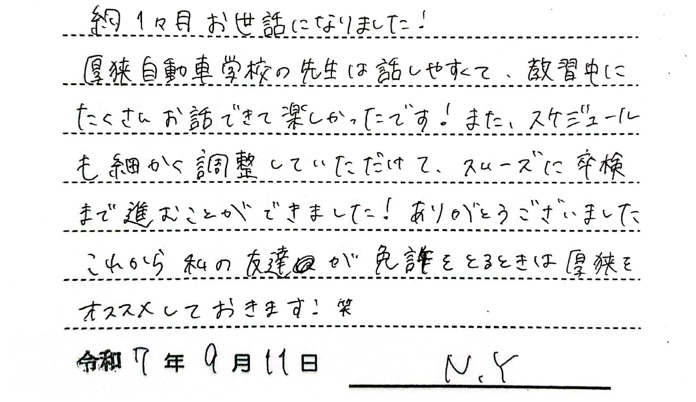 約1ヶ月お世話になりました!
厚狭自動車学校の先生は話しやすくて、教習中に
たくさんお話できて楽しかったです!また、スケジュール
も細かく調整していただけて、スムーズに卒検
まで進むことができました!ありがとうございました
これから私の友達が免許をとるときは厚狭を
オススメしておきます!笑
令和7年9月11日 N.Y